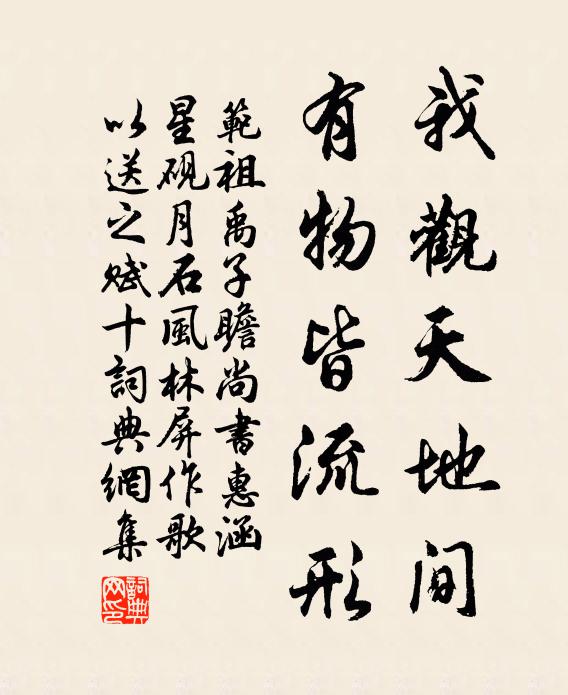 我觀天地间
有物皆流形
範祖禹子瞻尚書惠涵
星硯月石風林屏作歌
以送之賦十詞典網集
詞典
网印